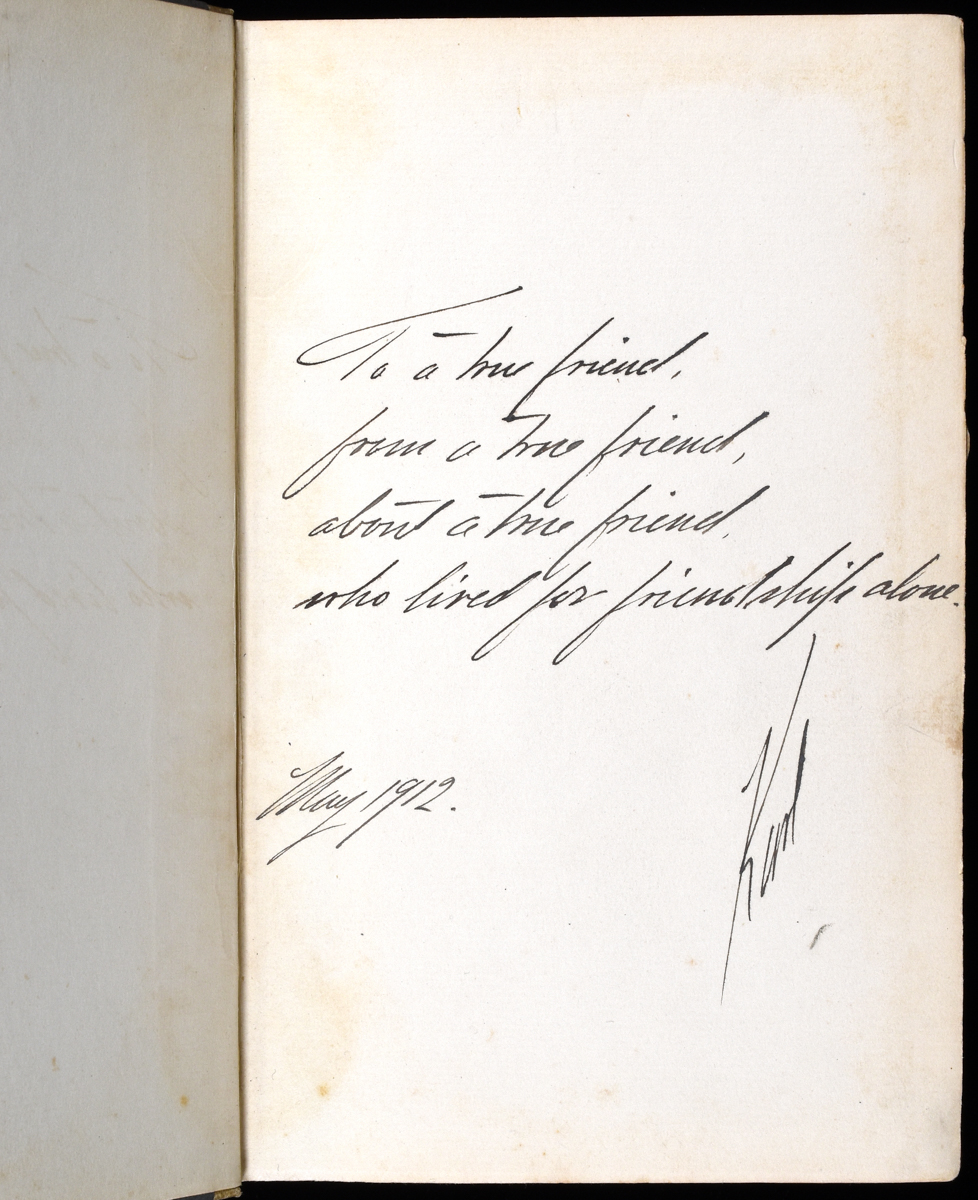 To a true friend,
from a true friend,
about a true friend,
who lived for friendship alone.
May 1912.
Kurt